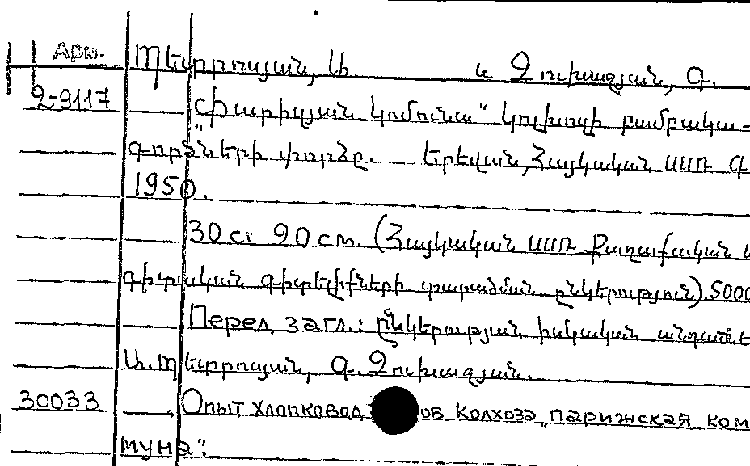 Арм. Պետրոսյան, Ա. և Զուխազյան, Գ.
2-3117 „Փարիզյան կոմունա" կոլխոզի բամբակա-
գործների փորձը. Երևան, Հայկական ՍՍՌ Գ
1950.
30 с. 20 см. (Հայկական ՍՍՌ Քաղաքական և
գիտական գիտելիքների տարածման ընկերություն) 5000
Перел. загл.: Ընկերության իսկական անդամ
Ա. Պետրոսյան, Գ. Զուխազյան.
30033 Опыт хлопковод ов колхоза „парижская ком
муна".